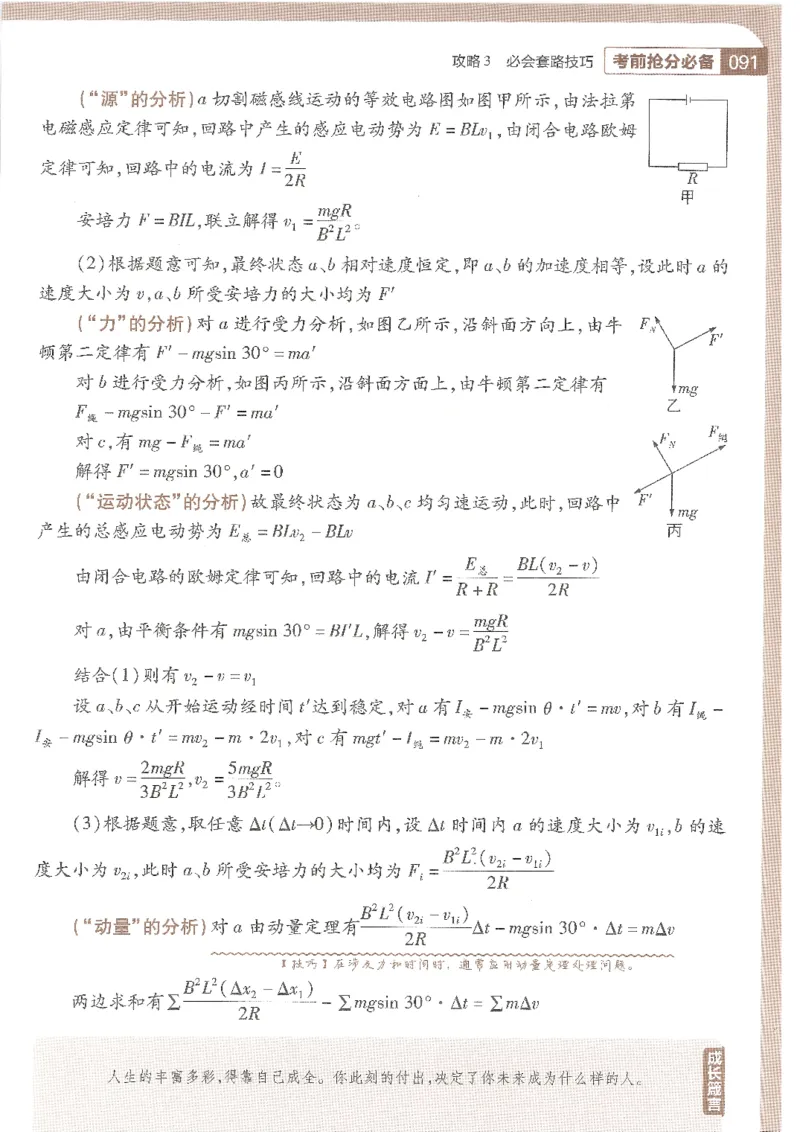 攻略3 必会套路技巧 考前抢分必备 091
(“源”的分析)a切割磁感线运动的等效电路图如图甲所示,由法拉第
电磁感应定律可知,回路中产生的感应电动势为 E=BLv₁,由闭合电路欧姆
定律可知,回路中的电流为 I=E/2R
R
甲
安培力 F=BIL,联立解得 v₁=mgR/B²L²。
(2)根据题意可知,最终状态a、b相对速度恒定,即a、b的加速度相等,设此时a的
速度大小为v,a、b所受安培力的大小均为 F′
(“力”的分析)对a进行受力分析,如图乙所示,沿斜面方向上,由牛
顿第二定律有 F′-mgsin 30°=ma′
F_N F′ mg
乙
对b进行受力分析,如图丙所示,沿斜面方面上,由牛顿第二定律有
F绳-mgsin 30°-F′=ma′
对c,有 mg-F绳=ma′
解得 F′=mgsin 30°,a′=0
F_N F绳 F′ mg
丙
(“运动状态”的分析)故最终状态为a、b、c均匀速运动,此时,回路中
产生的总感应电动势为 E总=BLv₂-BLv
由闭合电路的欧姆定律可知,回路中的电流 I′=E总/(R+R)=BL(v₂-v)/2R
对a,由平衡条件有 mgsin 30°=BI′L,解得 v₂-v=mgR/B²L²
结合(1)则有 v₂-v=v₁
设a、b、c从开始运动经时间t′达到稳定,对a有I安-mgsin θ·t′=mv,对b有I绳-
I安-mgsin θ·t′=mv₂-m·2v₁,对c有mgt′-I绳=mv₂-m·2v₁
解得 v=2mgR/3B²L²,v₂=5mgR/3B²L²。
(3)根据题意,取任意Δt(Δt→0)时间内,设Δt时间内a的速度大小为v₁ᵢ,b的速
度大小为v₂ᵢ,此时a、b所受安培力的大小均为 Fᵢ=B²L²(v₂ᵢ-v₁ᵢ)/2R
(“动量”的分析)对a由动量定理有B²L²(v₂ᵢ-v₁ᵢ)/2R Δt-mgsin 30°·Δt=mΔv
【技巧】在涉及力和时间时,通常应用动量定理处理问题。
两边求和有∑B²L²(Δx₂-Δx₁)/2R-∑mgsin 30°·Δt=∑mΔv
人生的丰富多彩,得靠自己成全。你此刻的付出,决定了你未来成为什么样的人。
成长箴言